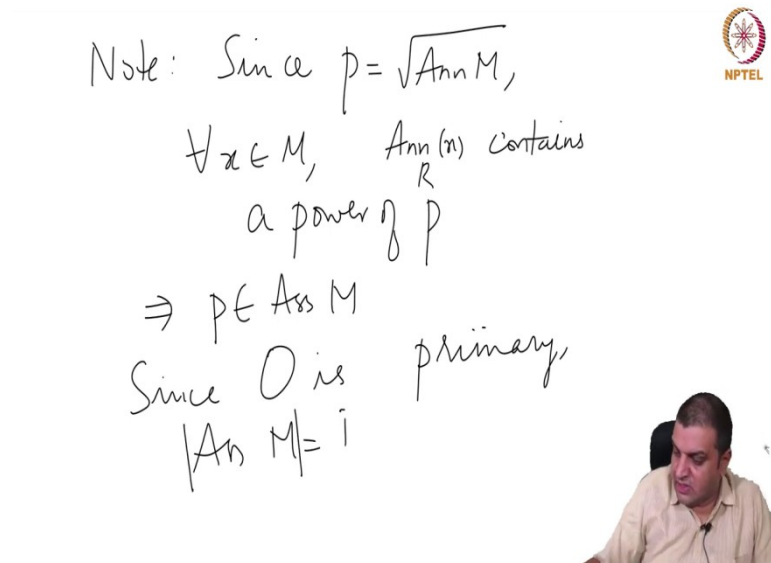 Note: Since p = √Ann M,
∀x ∈ M, Ann_R(x) contains
a power of p
⇒ p ∈ Ass M
Since 0 is primary,
|Ass M| = 1
NPTEL